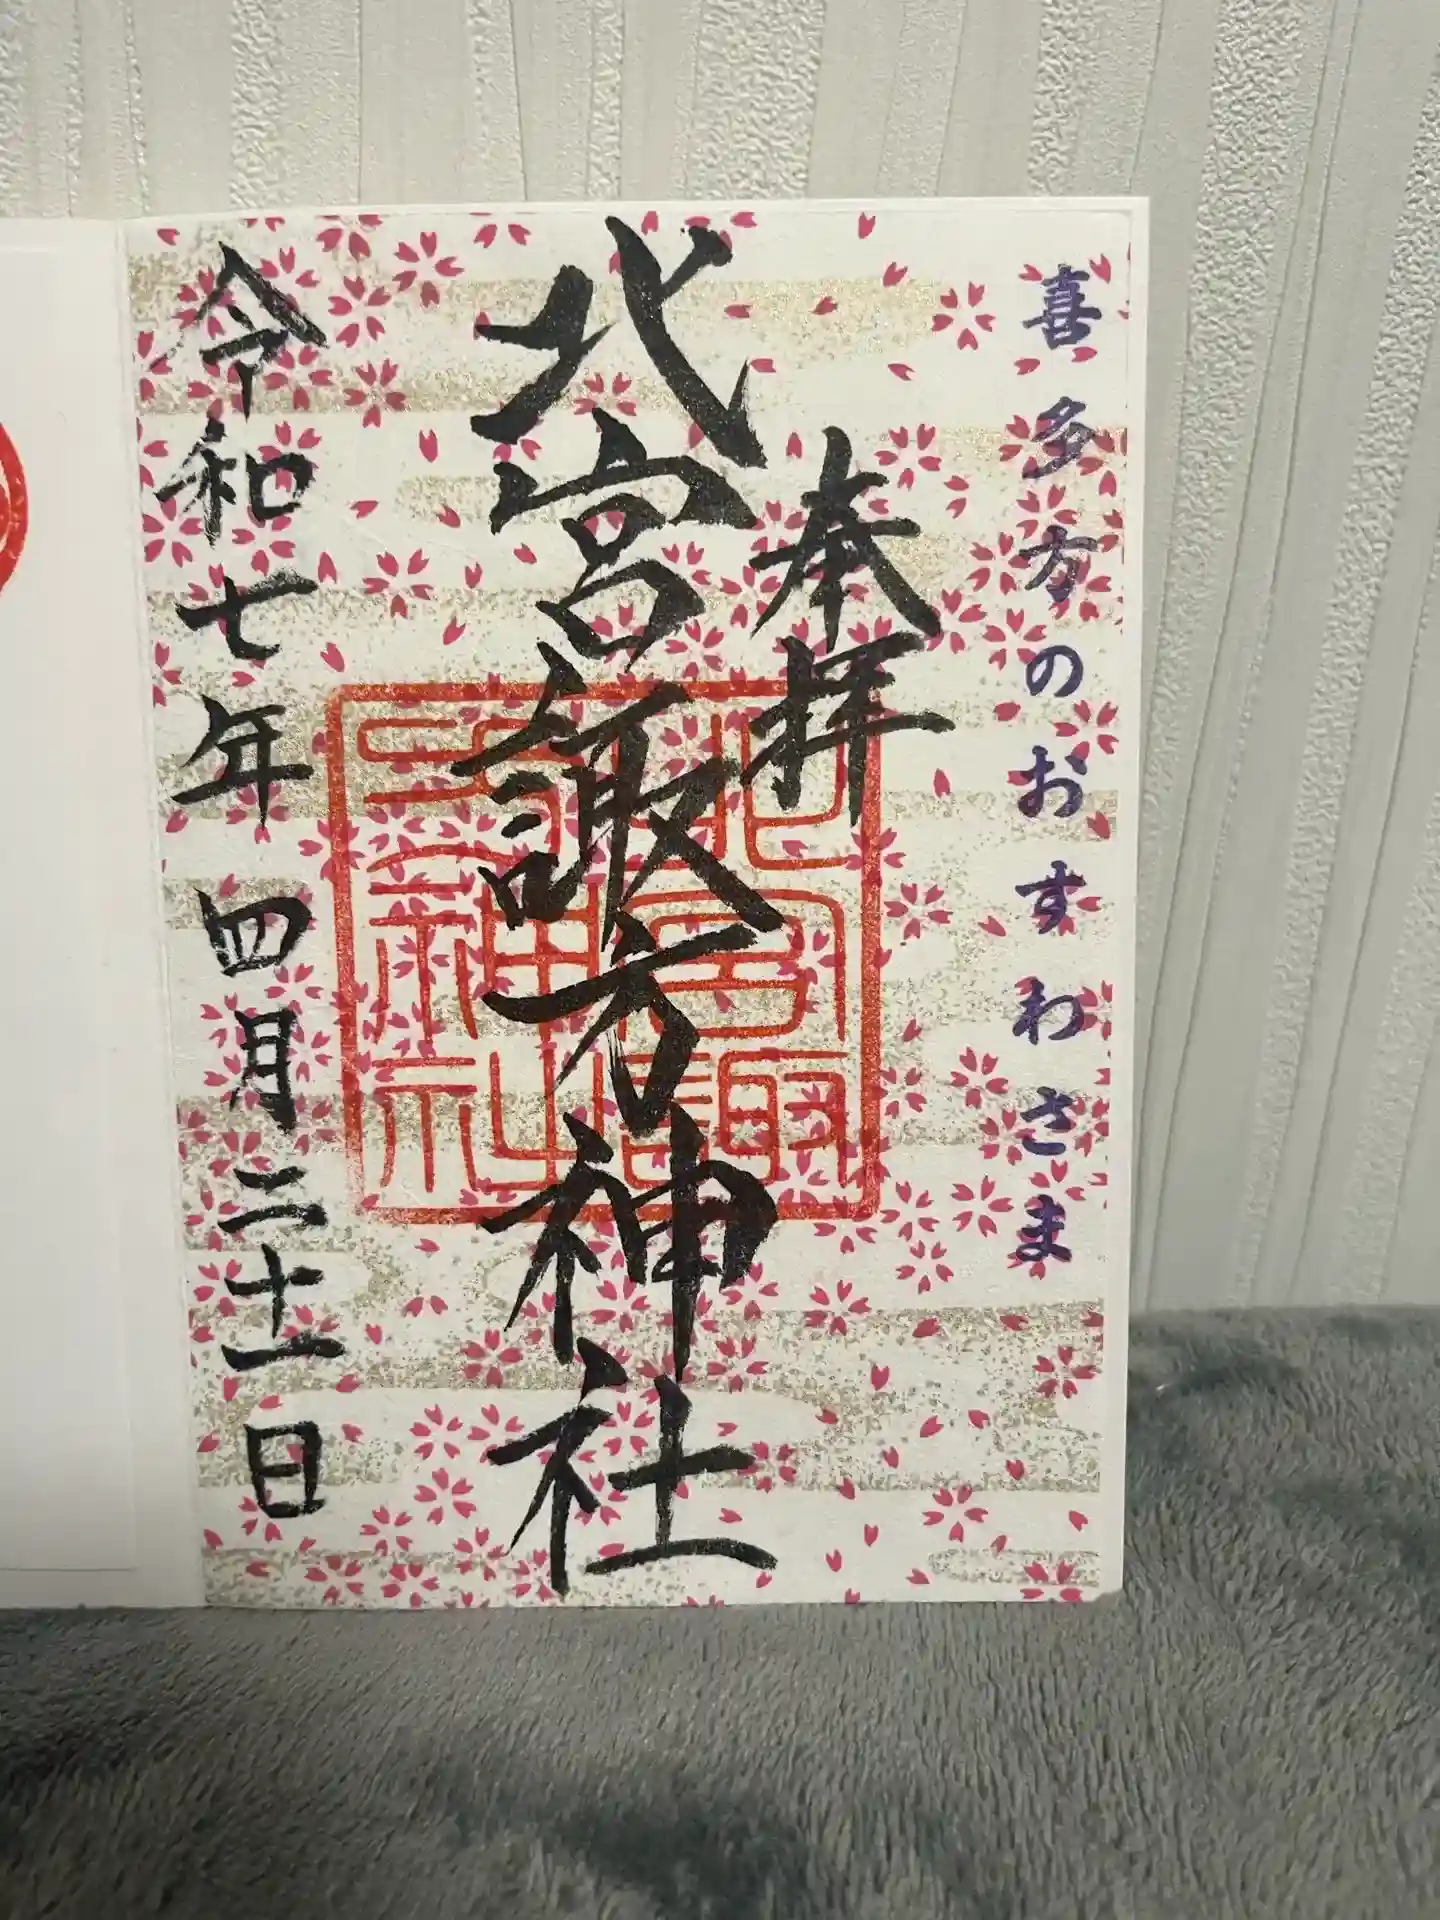 喜多方のおすわさま
奉拝
北宮諏方神社
北宮諏方神社
令和七年四月二十一日